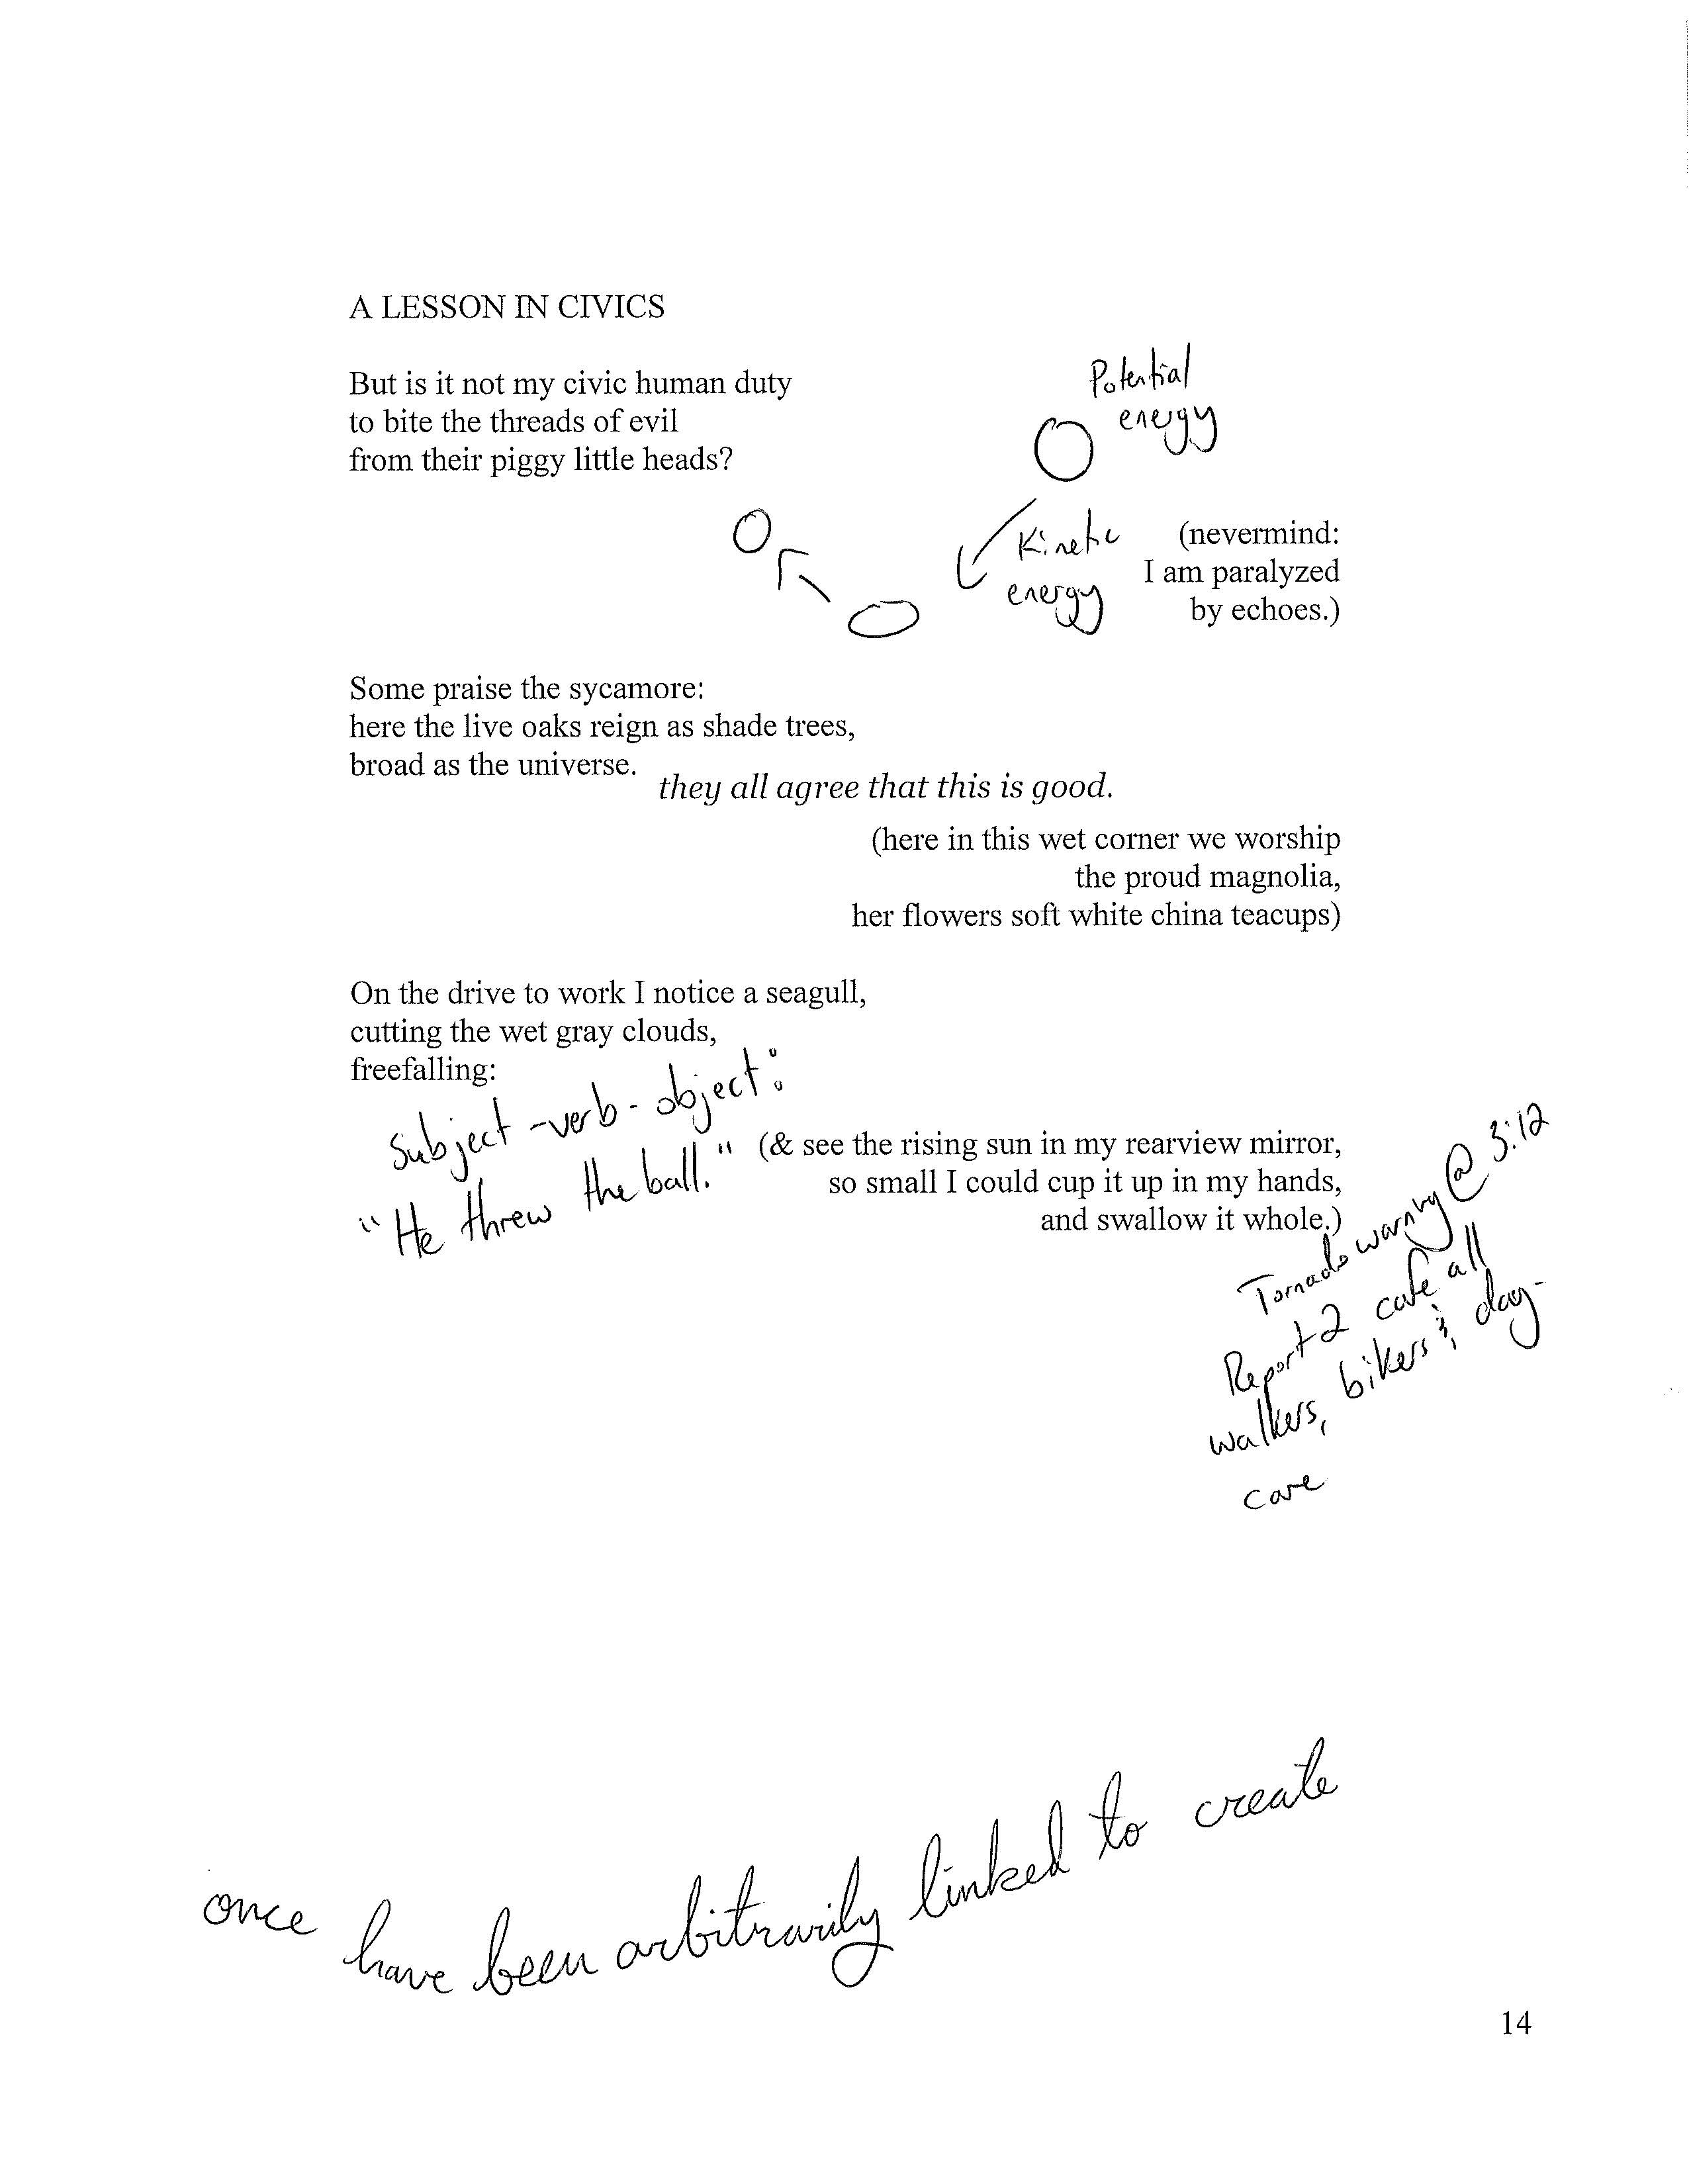 A LESSON IN CIVICS
But is it not my civic human duty
to bite the threads of evil
from their piggy little heads?
Potential
energy
Kinetic
energy
(nevermind:
I am paralyzed
by echoes.)
Some praise the sycamore:
here the live oaks reign as shade trees,
broad as the universe.
they all agree that this is good.
(here in this wet corner we worship
the proud magnolia,
her flowers soft white china teacups)
On the drive to work I notice a seagull,
cutting the wet gray clouds,
freefalling:
Subject-verb-object:
"He threw the ball."
(& see the rising sun in my rearview mirror,
so small I could cup it up in my hands,
and swallow it whole.)
Tornado warning @ 3:12
Report 2 cafe all
walkers, bikers & day-
care
once have been arbitrarily linked to create
14